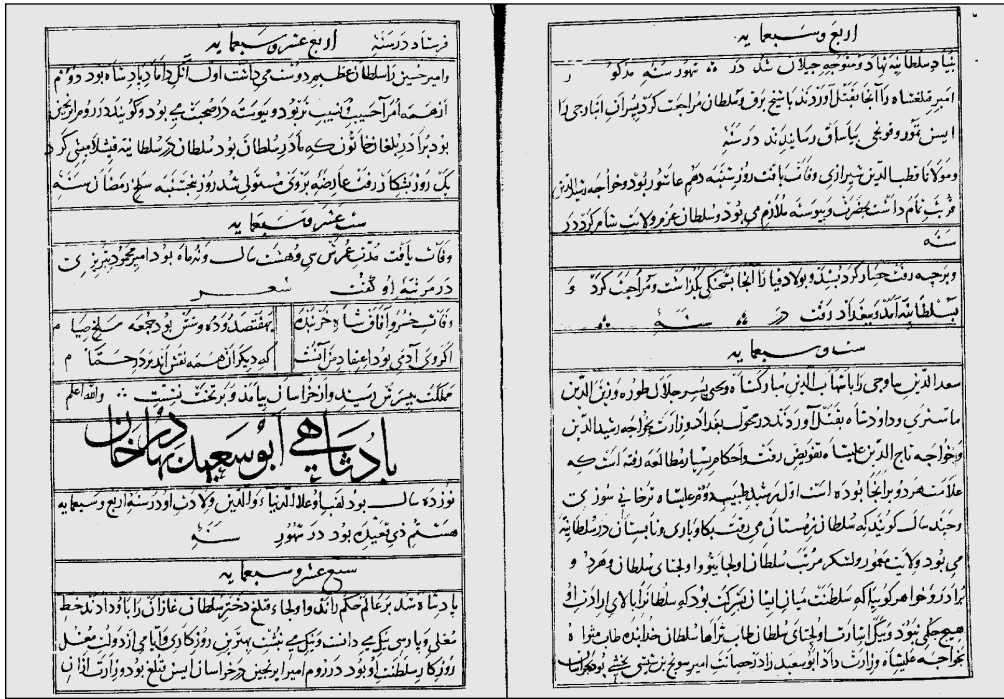 اربع و سبعمایه
بنیاد سلطانیه نهاد و متوجه جیلان شد در شهور سنه مذکور
امیر قتلغشاه را آنجا بقتل آوردند با شیخ برق و سلطان مراجعت کرد پسران
ایسن تمور و قونجی بیاساق رسانیدند در سنه
و مولانا قطب الدین شیرازی وفات یافت روز شنبه دهم عاشور بود و خواجه رشید الدین
قربت تمام داشت بحضرت و پیوسته ملازم می بود و سلطان عزم ولایت شام کرد در
سنه
و برحبه رفت حصار کرد بستد و را آنجا بشحنکی بگذاشت و مراجعت کرد و
بسلطانیه آمد و ببغداد رفت در سنه
ست و سبعمایه
سعد الدین ساوجی را با شهاب الدین مبارکشاه و یحیی پسر جلال طوره و زین الدین
ماستری و داود شاه بقتل آوردند در محول بغداد و وزارت بخواجه رشید الدین
و بخواجه تاج الدین علیشاه تفویض رفت و احکام بسیار مطالعه رفته است که
علامت هر دو بر آنجا بوده است اول رشید طبیب دوم علیشاه
و چند سال گویند که سلطان زمستان می رفت بکاوباری و تابستان در سلطانیه
می بود ولایت معمور و لشکر مرتب سلطان اولجایتو و اولجتای سلطان و هر دو
برادر و خواهر گوییا که سلطنت میان ایشان بشرکت بود که سلطانرا بالای ارادت او
هیچ حکمی نبود و بیک اشارت اولجتای سلطان طاب ثراها سلطان خدابنده طاب مثواه
بخواجه علیشاه وزارت داد ابوسعید زاد در حضانت امیر سونج بن بخشی بود چون
فرستاد در سنه اربع عشر و سبعمایه
و امیر حسین را سلطان عظیم دوست می داشت اول آنک داماد پادشاه بود دوم
از همه امرا حسیب نسیب تر بود و پیوسته در صحبت می بود و گویند در روم ایرنجین
بود برادر بلغان خاتون که مادر سلطان بود سلطان در سلطانیه قیشلامیشی کرد
یک روز بشکار رفت عارضه بر وی مستولی شد روز پنجشنبه سلخ رمضان سنه
ست عشر و سبعمایه
وفات یافت مدت عمرش سی و هشت سال و نه ماه بود امیر محمود تبریزی
در مرثیه او گفت شعر
وفات خسرو آفاق شاه خربنده بهفتصد و ده و شش بود جمعه سلخ صیام
اگر وی آدمی بود اعتقاد من آنست که دیگران همه نقش اند بر در حمام
مملکت بپسرش رسید و از خراسان بیامد و بر تخت نشست والله اعلم
پادشاهی ابو سعید بهادر خان
نوزده سال بود لقب او علاء الدنیا والدین ولادت او در سنه اربع و سبعمایه
هشتم ذی قعده بود در شهور سنه
سبع عشر و سبعمایه
پادشاه شد بر عالم حکم راند و اولجای قتلغ دختر سلطان غازان را باو دادند خط
مغلی و پارسی نیک می دانست و نیک می نبشت بهترین روزگاری و ایامی از دولت مغل
روزگار سلطنت او بود در روم امیر ایرنجین در خراسان ایسن قتلغ بود وزارت از آن